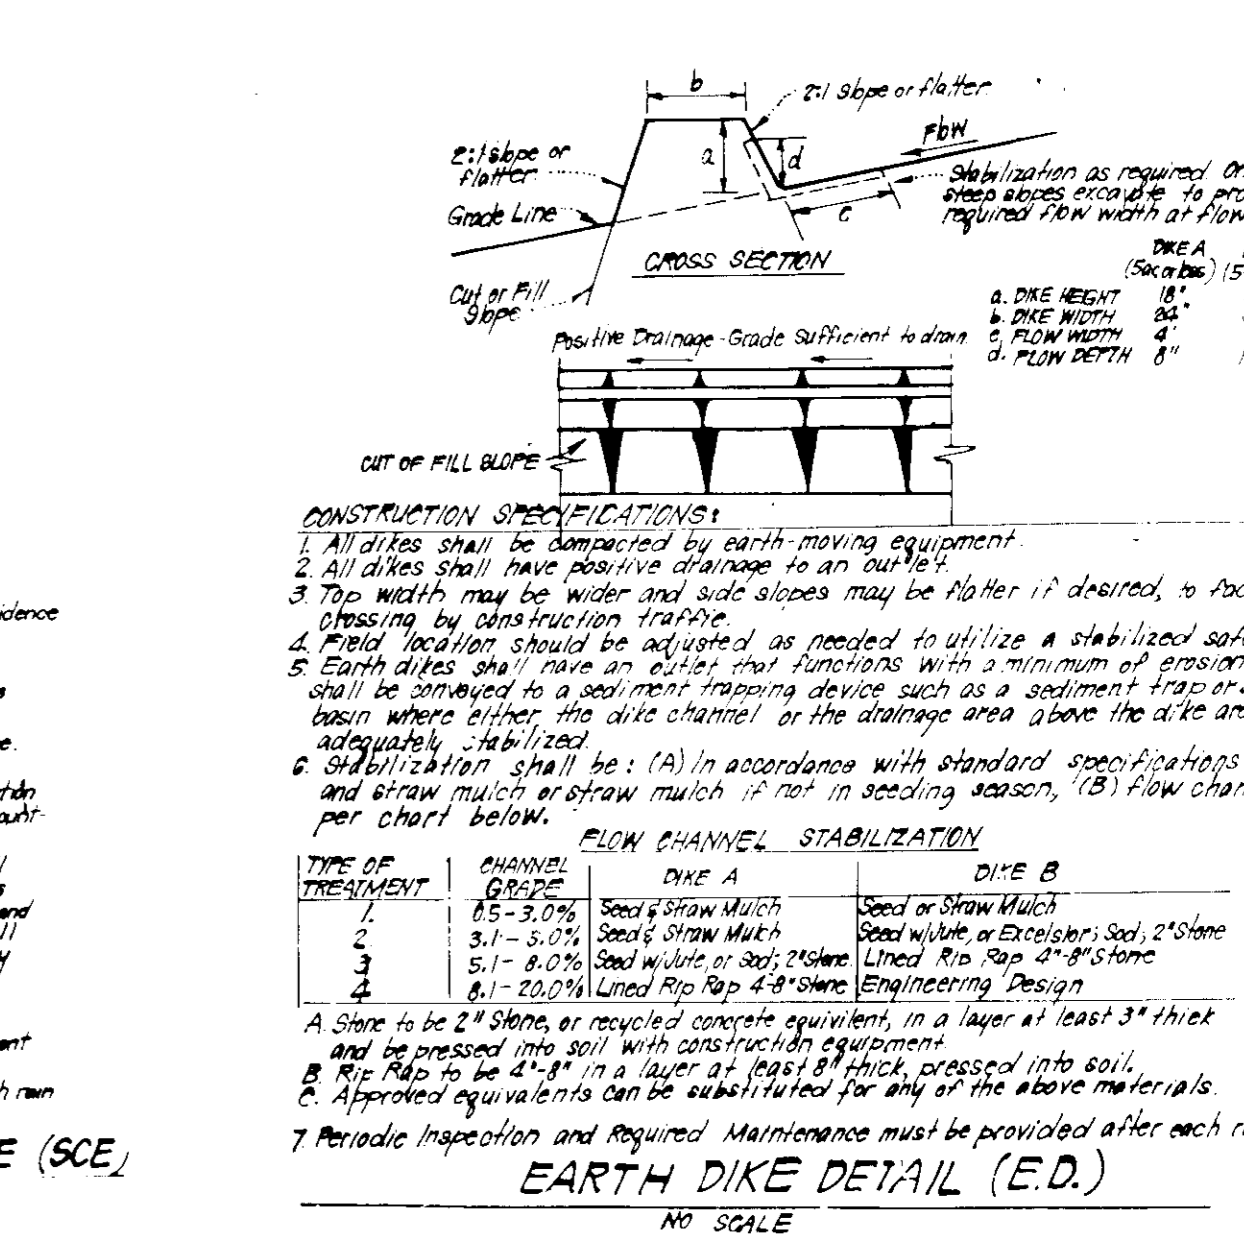 b
2:1 slope or flatter
Flow
a
d
2:1 slope or
flatter
Stabilization as required. On
steep slopes excavate to pro
required flow width at flow
Grade Line
c
CROSS SECTION
DIKE A
(5ac or less) (5
Cut or Fill
Slope
a. DIKE HEIGHT 18"
b. DIKE WIDTH 24"
c. FLOW WIDTH 4'
d. FLOW DEPTH 8"
Positive Drainage - Grade Sufficient to drain
CUT OF FILL SLOPE
CONSTRUCTION SPECIFICATIONS:
1. All dikes shall be compacted by earth-moving equipment.
2. All dikes shall have positive drainage to an outlet.
3. Top width may be wider and side slopes may be flatter if desired, to fac
crossing by construction traffic.
4. Field location should be adjusted as needed to utilize a stabilized saf
5. Earth dikes shall have an outlet that functions with a minimum of erosion
shall be conveyed to a sediment trapping device such as a sediment trap or
basin where either the dike channel or the drainage area above the dike are
adequately stabilized.
6. Stabilization shall be: (A) In accordance with standard specifications
and straw mulch or straw mulch if not in seeding season, (B) flow chan
per chart below.
FLOW CHANNEL STABILIZATION
TYPE OF TREATMENT CHANNEL GRADE DIKE A DIKE B
1. 0.5-3.0% Seed & Straw Mulch Seed or Straw Mulch
2 3.1-5.0% Seed & Straw Mulch Seed w/Jute, or Excelsior; Sod; 2" Stone
3 5.1-8.0% Seed w/Jute, or Sod; 2" Stone Lined Rip Rap 4"-8" Stone
4 8.1-20.0% Lined Rip Rap 4-8" Stone Engineering Design
A. Stone to be 2" Stone, or recycled concrete equivilent, in a layer at least 3" thick
and be pressed into soil with construction equipment.
B. Rip Rap to be 4"-8" in a layer at least 8" thick, pressed into soil.
C. Approved equivalents can be substituted for any of the above materials.
7. Periodic Inspection and Required Maintenance must be provided after each r
EARTH DIKE DETAIL (E.D.)
NO SCALE
idence
s
e.
tion
ount-
l
s
and
ll
y
ent
h rain
E (SCE)